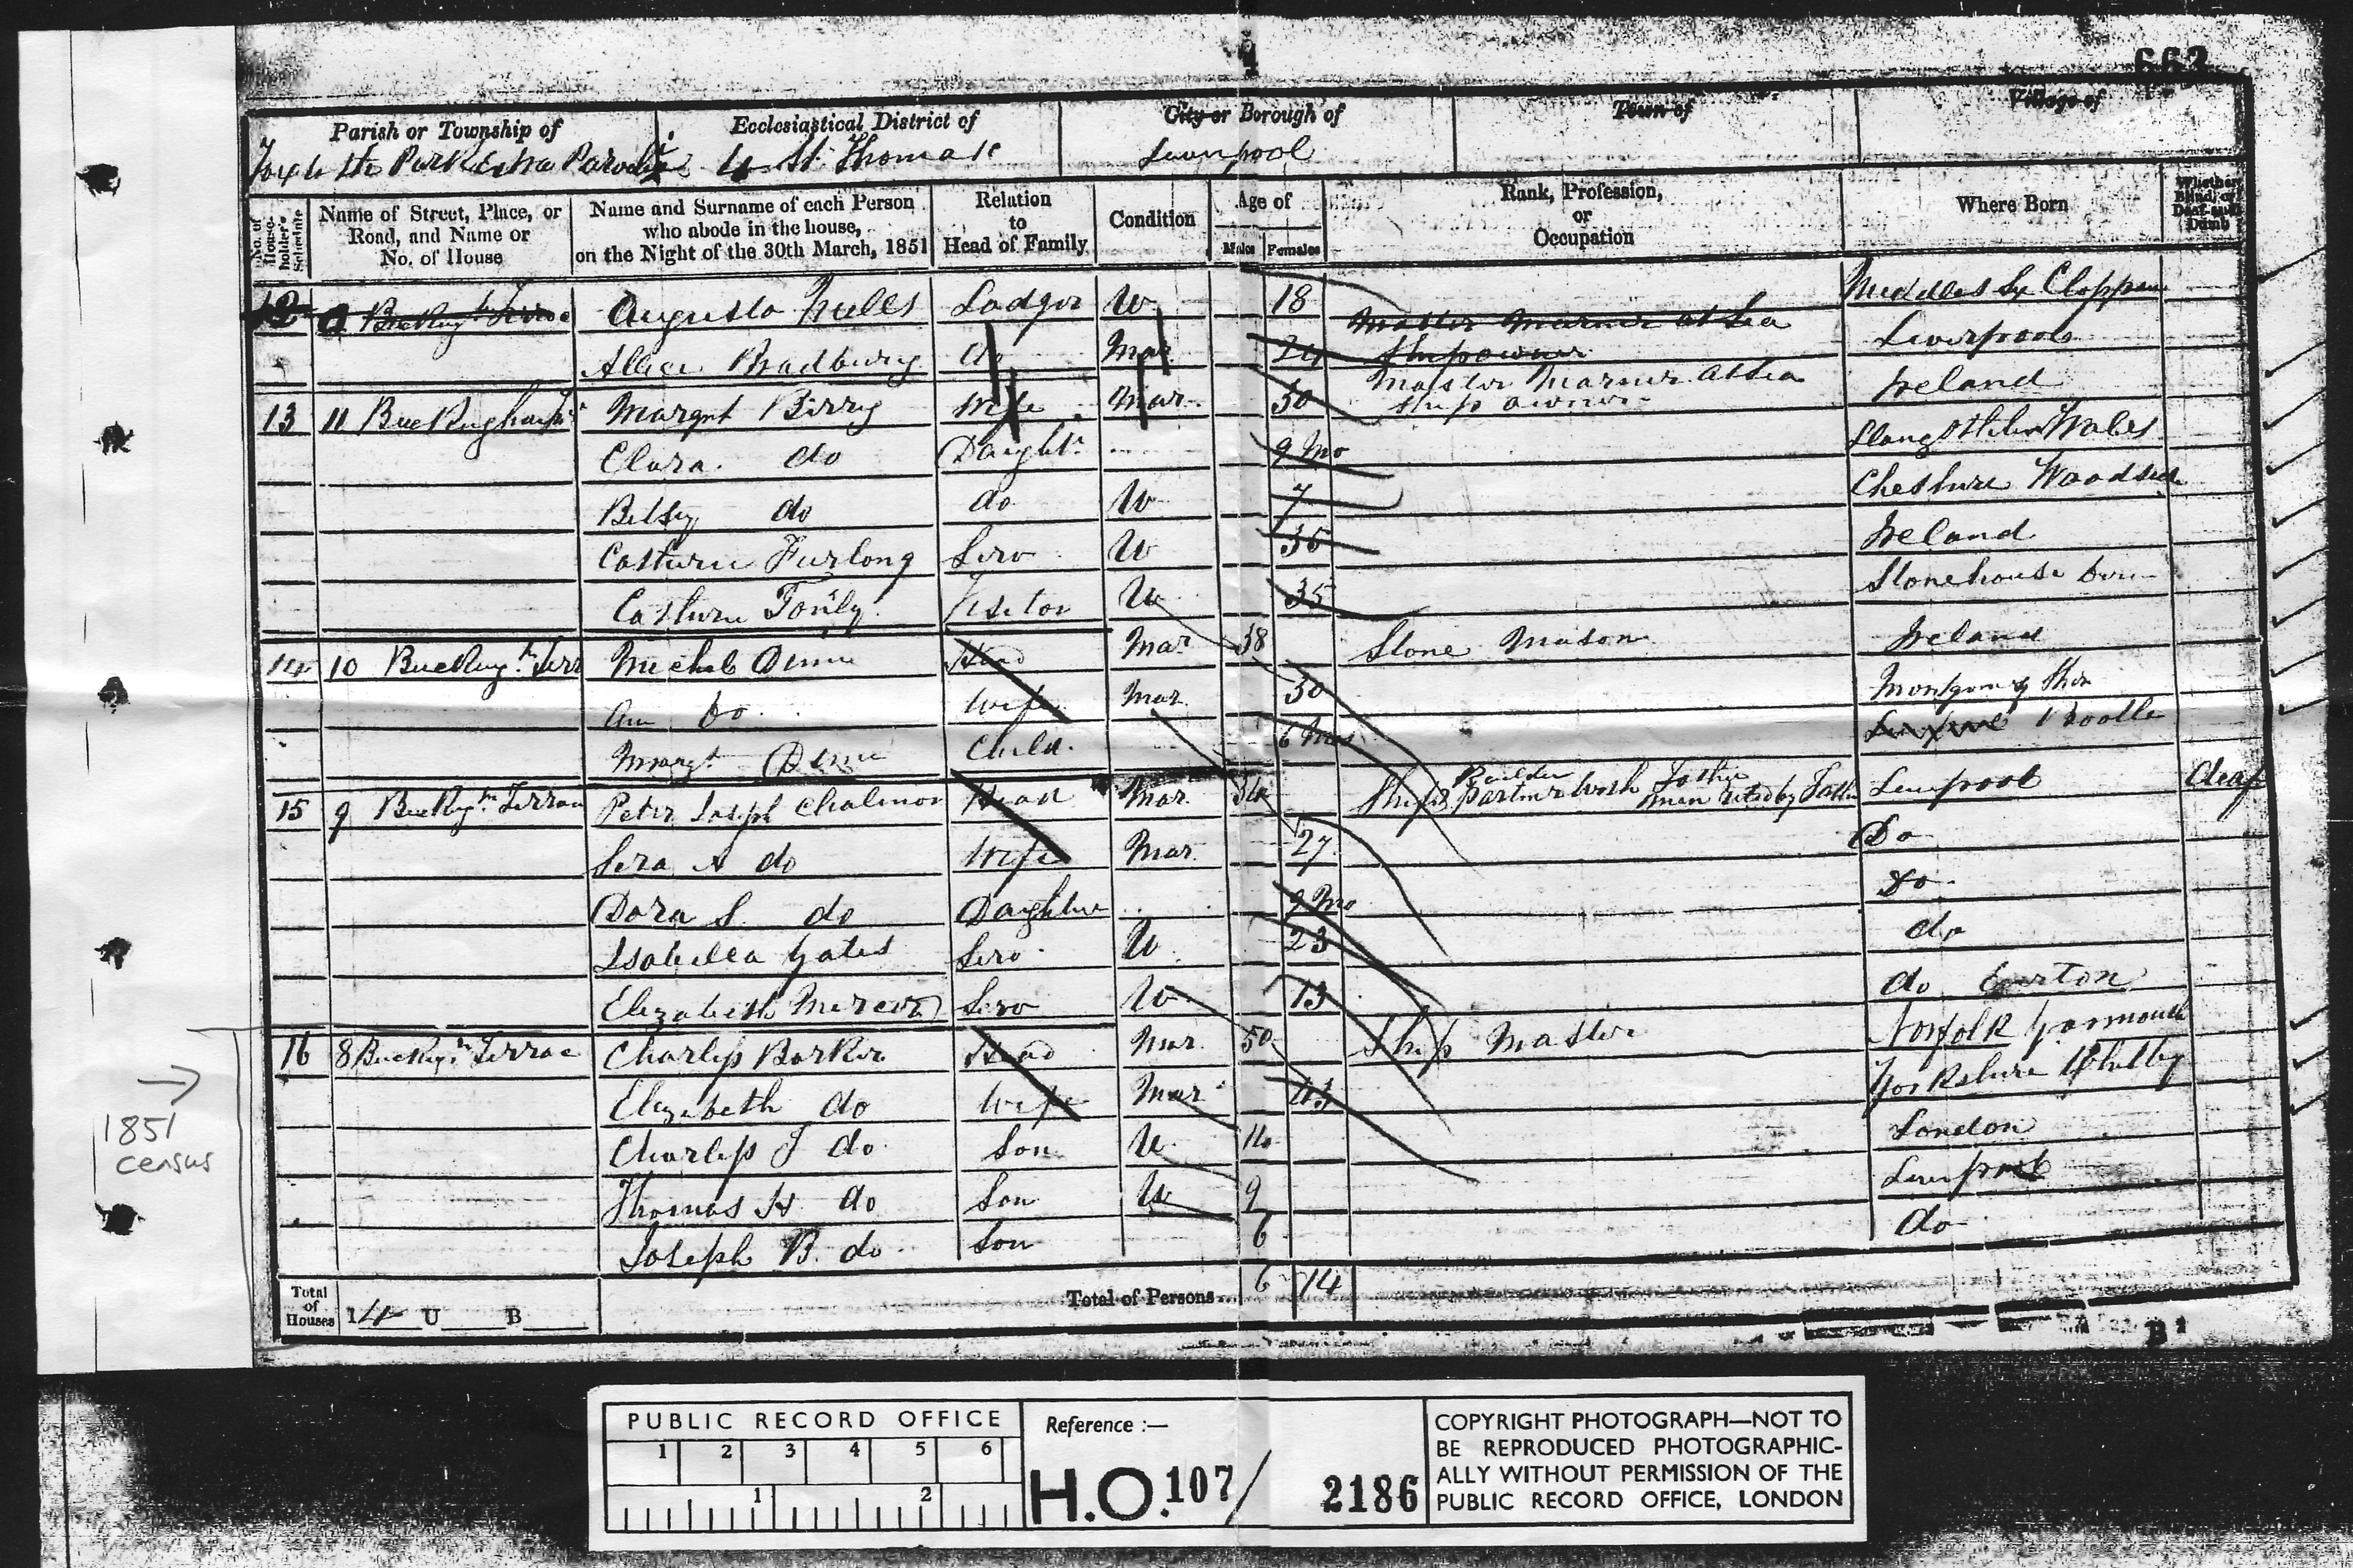 662
Parish or Township of
Ecclesiastical District of
City or Borough of
Town of
Village of
Toxteth Park Extra Parochial
St Thomas
Liverpool
No. of House-holder's Schedule
Name of Street, Place, or Road, and Name or No. of House
Name and Surname of each Person who abode in the house, on the Night of the 30th March, 1851
Relation to Head of Family
Condition
Age of
Males
Females
Rank, Profession, or Occupation
Where Born
Whether Blind, or Deaf-and-Dumb
12 Bucking Terrac Augusta Lodger U 18 Master Mariner at Sea Middlesex
Allice Bradbury do Mar 24 Shipowner Liverpool
13 11 Margrt Berry Wife Mar. 30 Master Mariner at Sea Ship owner Ireland
Clara do Daught. 9 Mo Wales
Betsy do do U 7 Cheshire Woodside
Furlong Serv U 35 Ireland
Visitor U 35 Stonehouse
14 10 Bucking.m Terr Michel Head Mar 38 Stone Mason Ireland
Ann Do Wife Mar 30
Margt Child. 6 Mos Bootle
15 9 Bucking.m Terrace Peter Joseph Head Mar. Ship Builder Partner with Father Liverpool deaf
Sera A do Wife Mar. 27 Do
Dora S. do Daughter 9 Mo Do
Isabella Yates Serv U. 23 do
Elizabeth Mercer Serv U 13 do
16 8 Bucking.m Terrac Charless Barker Head Mar. 50 Ship Master Norfolk Yarmouth
Elizabeth do Wife Mar Yorkshire Whitby
Charless J do Son U London
Thomas H do Son U 9 Liverpool
Joseph B. do Son 6 do
1851
census
Total of Houses
U
B
Total of Persons...
6
14
PUBLIC RECORD OFFICE
1 2 3 4 5 6
1 2
Reference :—
H.O. 107/ 2186
COPYRIGHT PHOTOGRAPH—NOT TO
BE REPRODUCED PHOTOGRAPHIC-
ALLY WITHOUT PERMISSION OF THE
PUBLIC RECORD OFFICE, LONDON